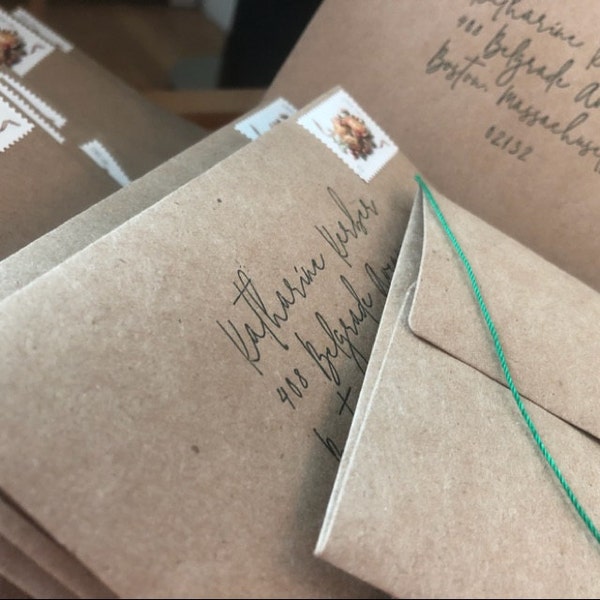 Katharine
408 Belgrade Av
Boston, Massachuset
02132
Katharine Kerber
408 Belgrade